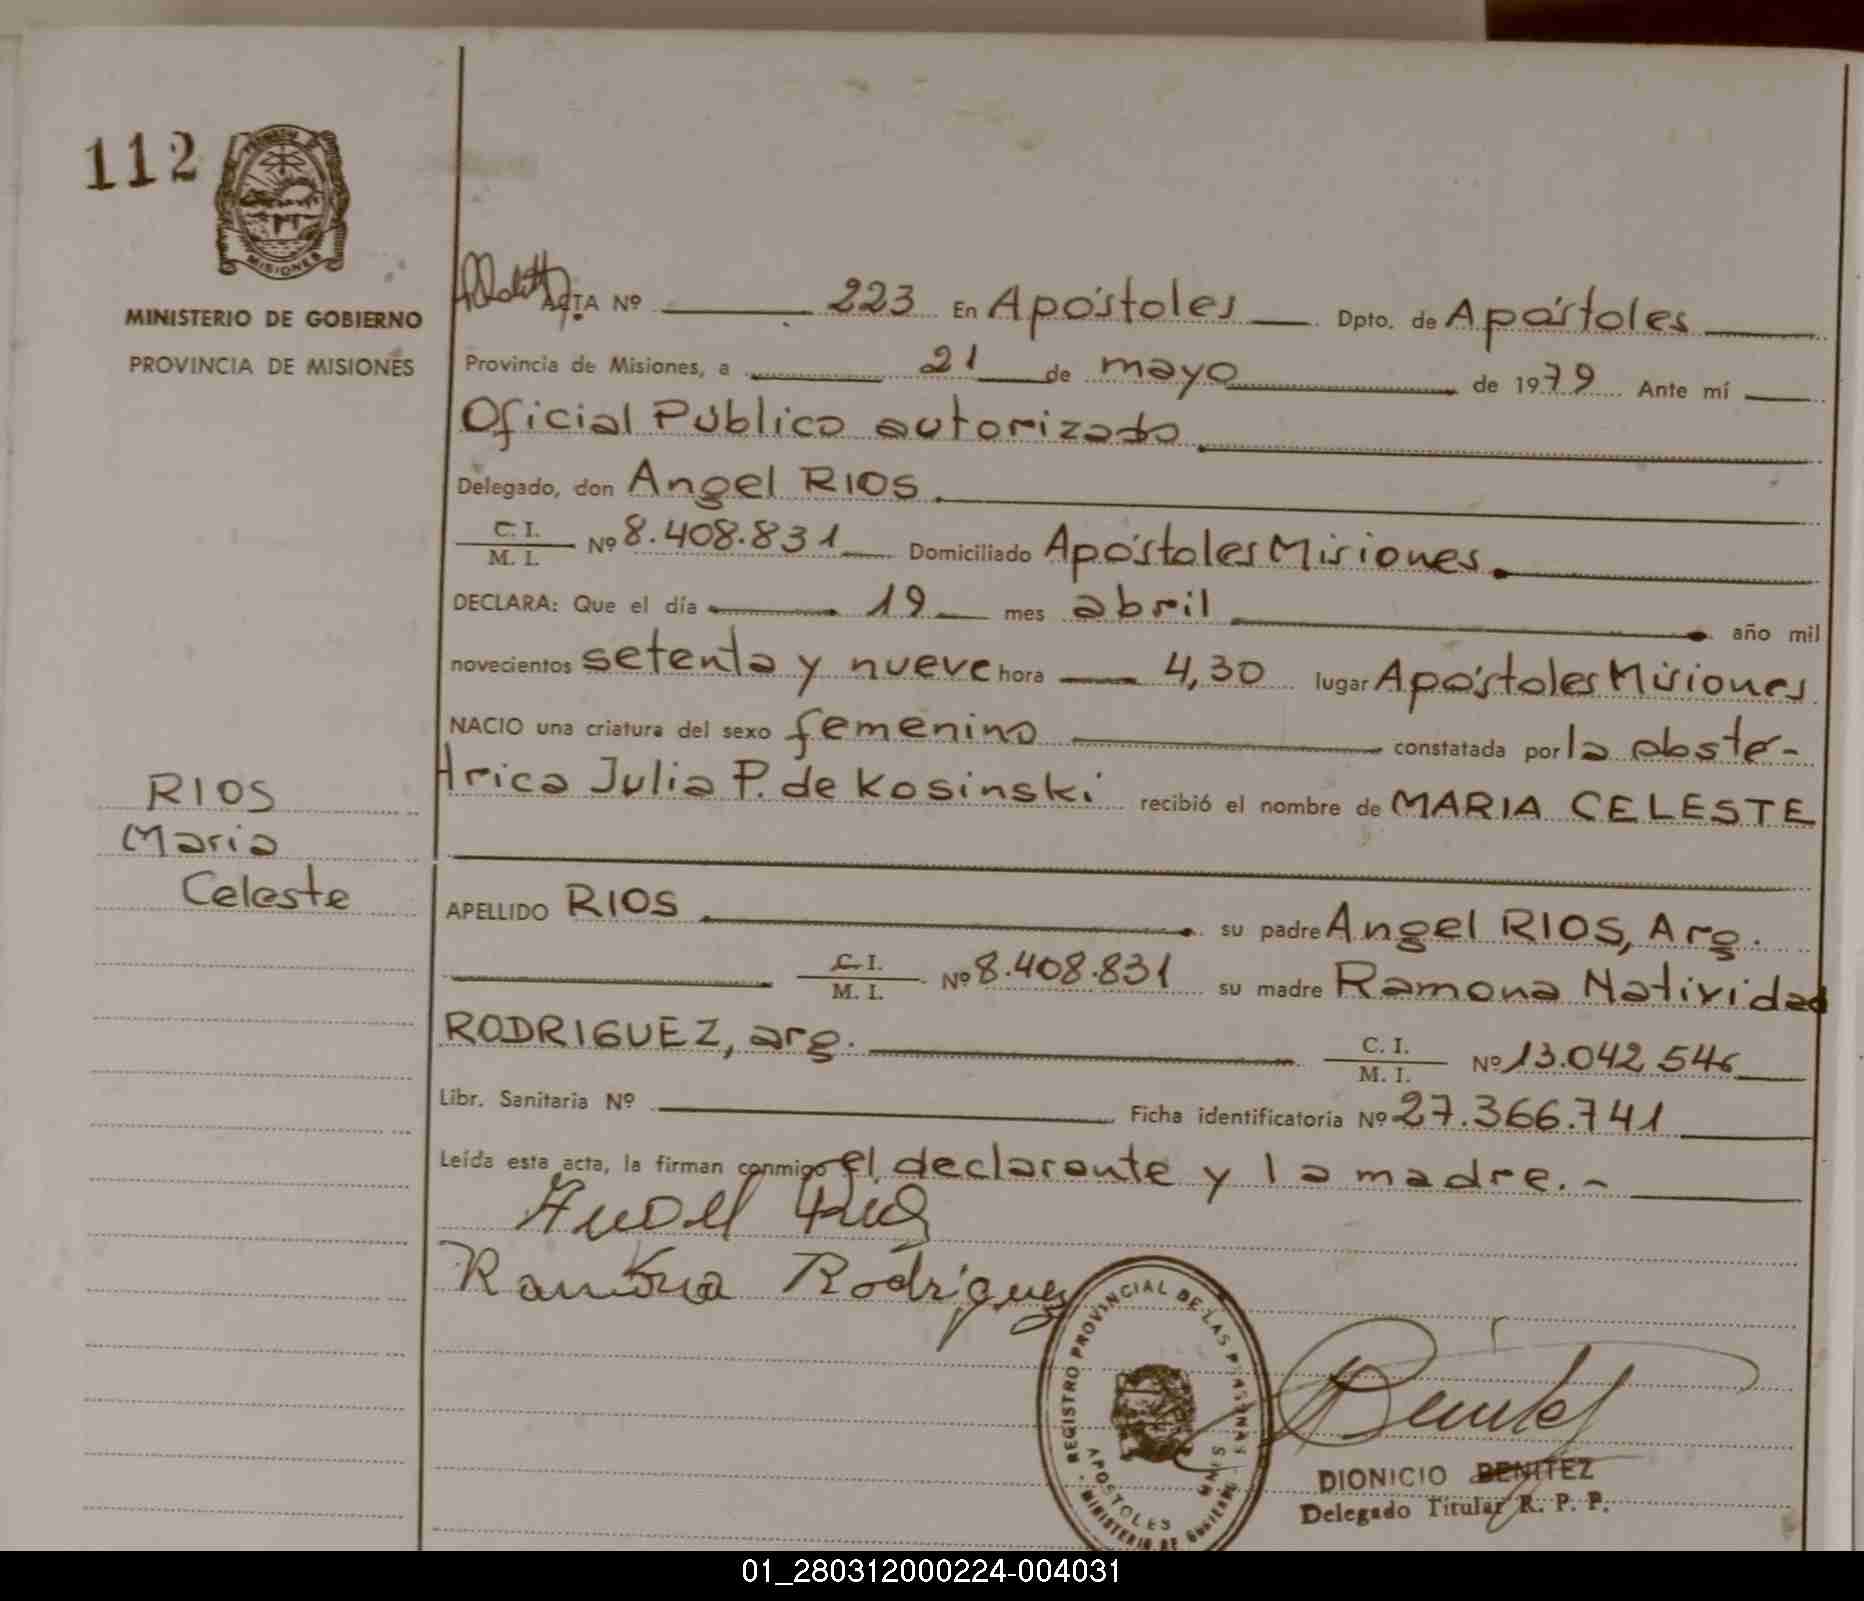 112
MISIONES
MINISTERIO DE GOBIERNO
PROVINCIA DE MISIONES
RIOS
Maria
Celeste
ACTA Nº 223 En Apóstoles Dpto. de Apóstoles
Provincia de Misiones, a 21 de mayo de 1979 Ante mí
Oficial Público autorizado
Delegado, don Angel RIOS
C. I.
M. I. Nº 8.408.831 Domiciliado Apóstoles Misiones.
DECLARA: Que el día 19 mes abril año mil
novecientos setenta y nueve hora 4,30 lugar Apóstoles Misiones.
NACIO una criatura del sexo femenino constatada por la obste-
trica Julia P. de Kosinski recibió el nombre de MARIA CELESTE
APELLIDO RIOS su padre Angel RIOS, Arg.
C. I.
M. I. Nº 8.408.831 su madre Ramona Natividad
RODRIGUEZ, arg. C. I.
M. I. Nº 13.042.546
Libr. Sanitaria Nº Ficha identificatoria Nº 27.366.741
Leída esta acta, la firman conmigo el declarante y la madre.-
Ramona Rodriguez
REGISTRO PROVINCIAL DE LAS PERSONAS
APOSTOLES MNES
MINISTERIO DE GOBIERNO
DIONICIO BENITEZ
Delegado Titular R. P. P.
01_280312000224-004031